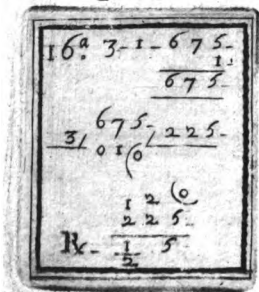 16ª. 3-1-675-
1.
675-
675-
3/ 225-
01(0
12(0
225-
R.- 1/2 5